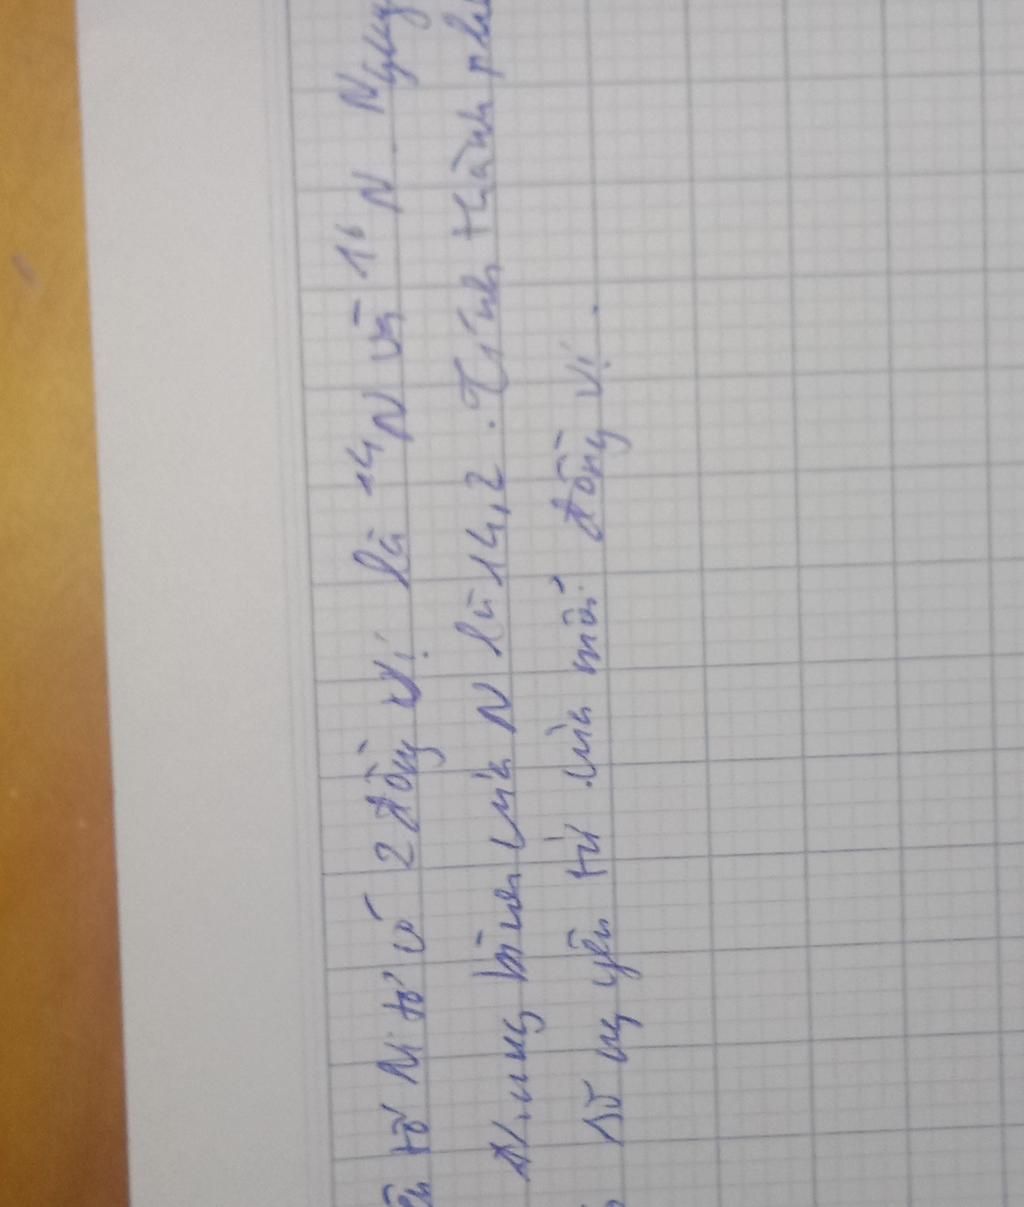 tử Nitơ có 2 đồng vị là ¹⁴N và ¹⁶N. Nguy
trung bình của N là 14,2. Tính thành ph
số nguyên tử của mỗi đồng vị.